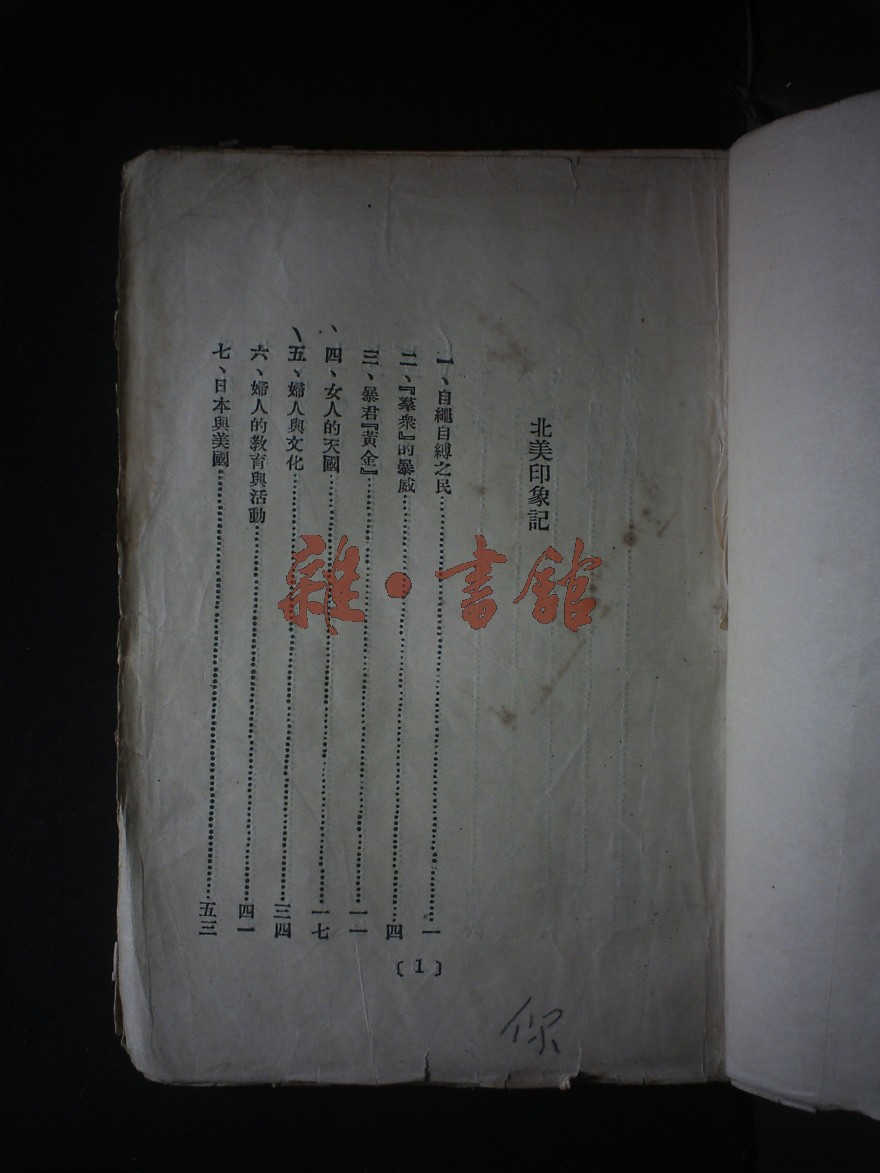 北美印象記
一、自繩自縛之民……一
二、『羣衆』的暴威……四
三、暴君『黃金』……一一
四、女人的天國……一七
五、婦人與文化……三四
六、婦人的教育與活動……四一
七、日本與美國……五三
〔1〕
你
雜·書館